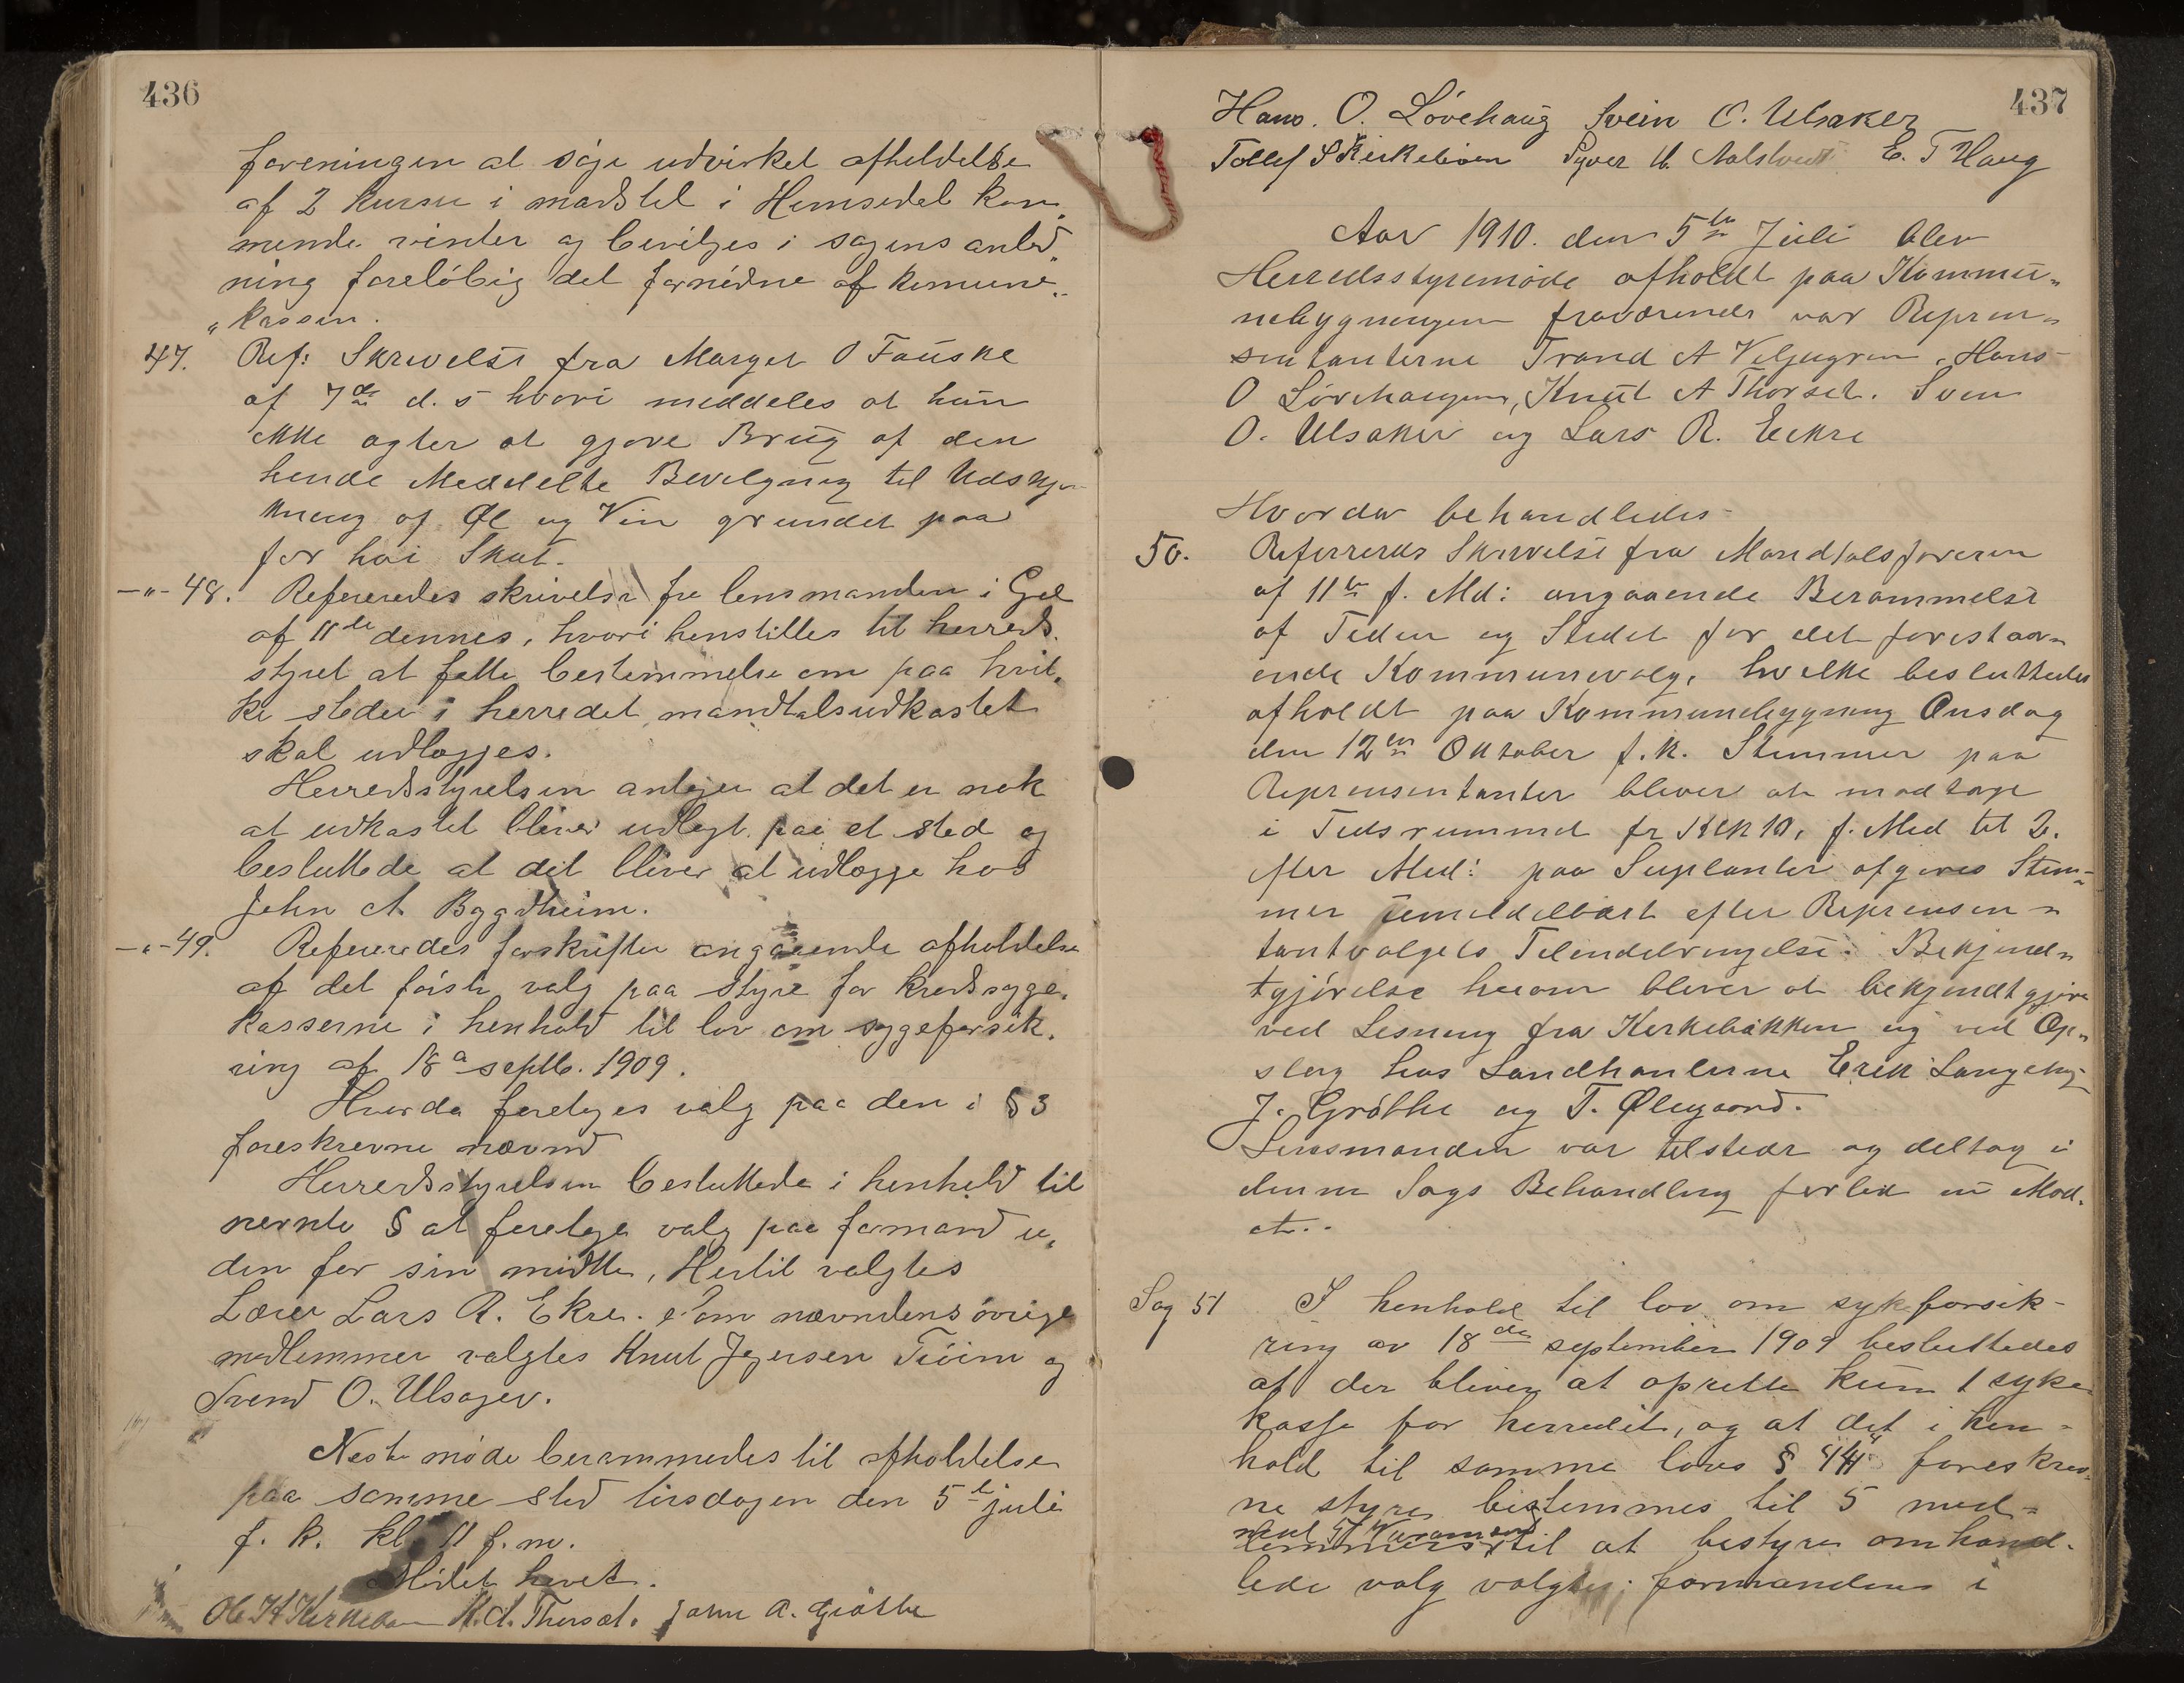 436
foreningen at søge udvirket afholdelse
af 2 kurser i madstel i Hemsedal kom„
mende vinter og bevilges i sagens anled„
ning foreløbig det fornødne af kommune„
„kassen.
47. Ref: Skrivelse fra Marget O Fauske
af 7de d. s hvori meddeles at hun
ikke agter at gjøre Brug af den
hende Meddelte Bevilgning til Udskjæ
kning af Øl og Vin grundet paa
for høi Skat.
-„- 48. Refereredes skrivelse fra lensmanden i Gol
af 11te dennes, hvori henstilles til herreds.
styret at fatte bestemmelse om paa hvil„
ke steder i herredet mandtalsudkastet
skal udlægges.
Herredsstyrelsen antager at det er nok
at udkastet bliver udlagt paa et sted og
besluttede at det bliver at udlægge hos
John A. Bygdheim.
-„- 49. Refereredes forskrifter angaaende afholdelse
af det første valg paa styre for kredssyge„
kasserne i henhold til lov om sygeforsik„
ring af 18a septb. 1909.
Hvorda foretages valg paa den i § 3
foreskrevne nævnd
Herredsstyrelsen besluttede i henhold til
nævnte § at foretage valg paa formand u„
den for sin midte. Hertil valgtes
Lærer Lars R. Ekre. Som nævndens øvrige
medlemmer valgtes Knut Jegersen Trøim og
Svend O. Ulsager.
Neste møde berammedes til afholdelse
paa samme sted tirsdagen den 5te juli
f. k. kl. 11 f. m.
Mødet hævet.
Ole H Kirkebøen K. A. Thorset. John A. Grøthe
437
Hans. O. Løvehaug Svein O. Ulsaker
Tollef S Kirkebøen Syver U. E. T Haug
Aar 1910. den 5te Juli blev
Herredsstyremøde afholdt paa Kommu„
nebygningen fraværende var Repræ„
sentanterne Trond A Veljugrein, Hans
O Løvehaugen, Knut A Thorset. Sven
O. Ulsaker og Lars R. Eekre
Hvorda behandledes
50. Refererers Skrivelse fra Mandtalsføreren
af 11te f. Md: angaaende Berammelse
af Tiden og Stedet for det forestaa„
ende Kommunevalg, hvilke besluttedes
afholdt paa Kommunebygning Onsdag
den 12te Oktober f. k. Stemmer paa
Repræsentanter bliver at modtage
i Tidsrummet fr Klk 10, f. Med til 2.
efter Med: paa Suplanter afgives Stem„
mer umiddelbart efter Repræsen„
tantvalgets Tilendebringelse. Bekjend„
tgjørelse herom bliver at bekjendtgjøre
ved Lesning fra Kirkebakken og ved Op„
slag hos Landhanlerne Erik Langehaug
J. Grøthe og T. Ølegaard.
Lensmanden var tilstede og deltog i
denne Sags Behandling forlod nu Mød„
et..
Sag 51 I henhold til lov om sykeforsik-
ring av 18de september 1909 besluttedes
at der bliver at oprette kun 1 syke
kasse for herredet, og at det i hen-
hold til samme lovs § 44 foreskrev„
ne styre bestemmes til 5 med-
med Varamænd.
lemmer til at bestyre omhand-
lede valg valgtes: formanden i